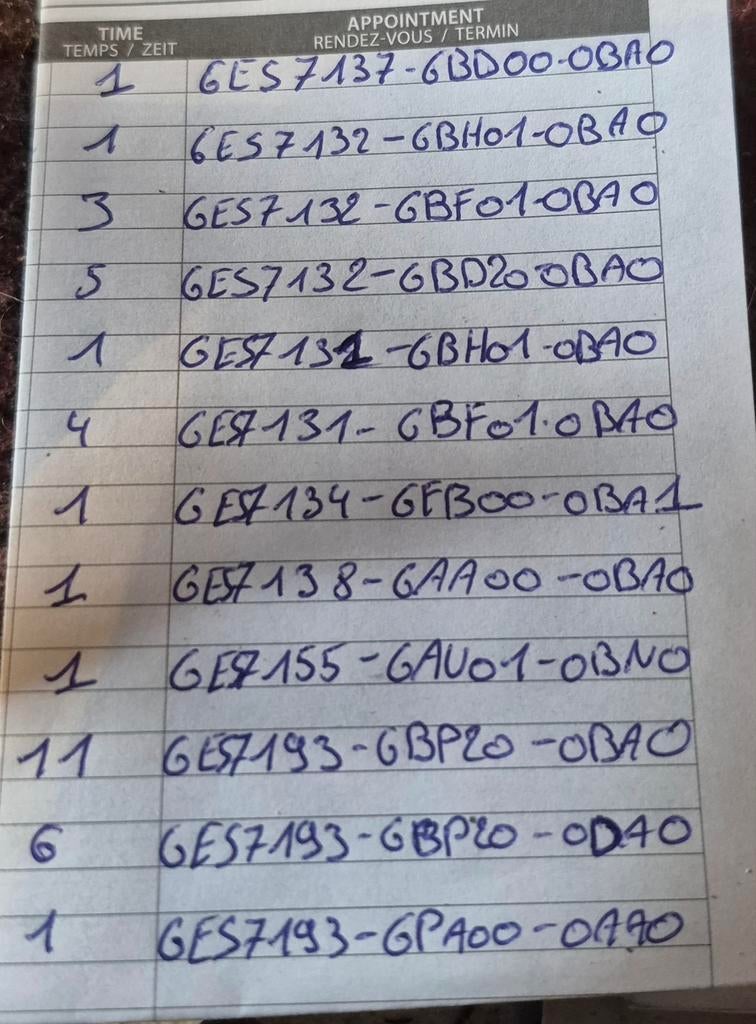 TIME APPOINTMENT
TEMPS / ZEIT RENDEZ-VOUS / TERMIN
1 6ES7137-6BD00-0BA0
1 6ES7132-6BH01-0BA0
3 6ES7132-6BF01-0BA0
5 6ES7132-6BD20-0BA0
1 6ES7131-6BH01-0BA0
4 6ES7131-6BF01-0BA0
1 6ES7134-6FB00-0BA1
1 6ES7138-6AA00-0BA0
1 6ES7155-6AU01-0BN0
11 6ES7193-6BP20-0BA0
6 6ES7193-6BP20-0DA0
1 6ES7193-6PA00-0AA0